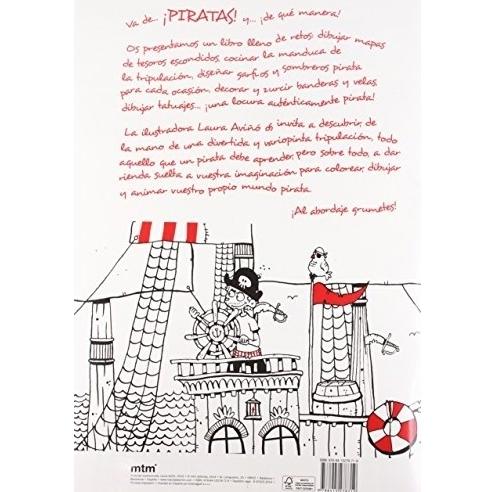 va de... ¡PIRATAS! y... ¡de qué manera!
Os presentamos un libro lleno de retos: dibujar mapas
de tesoros escondidos, cocinar la manduca de
la tripulación, diseñar garfios y sombreros pirata
para cada ocasión, decorar y zurcir banderas y velas,
dibujar tatuajes... ¡una locura auténticamente pirata!
La ilustradora Laura Aviñó os invita a descubrir, de
la mano de una divertida y variopinta tripulación, todo
aquello que un pirata debe aprender, pero sobre todo, a dar
rienda suelta a vuestra imaginación para colorear, dibujar
y animar vuestro propio mundo pirata.
¡Al abordaje grumetes!
mtm
FSC